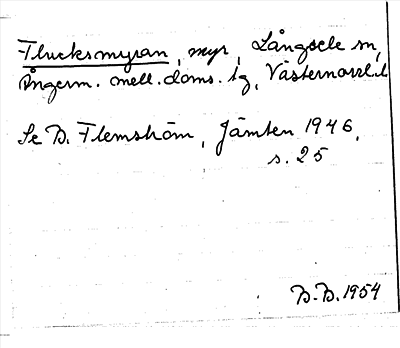 Flucksmyran, myr, Långsele sn,
Ångerm. mell. doms. tg, Västernorrl. l
Se B. Flemström, Jämten 1946,
s. 25
B.B. 1954